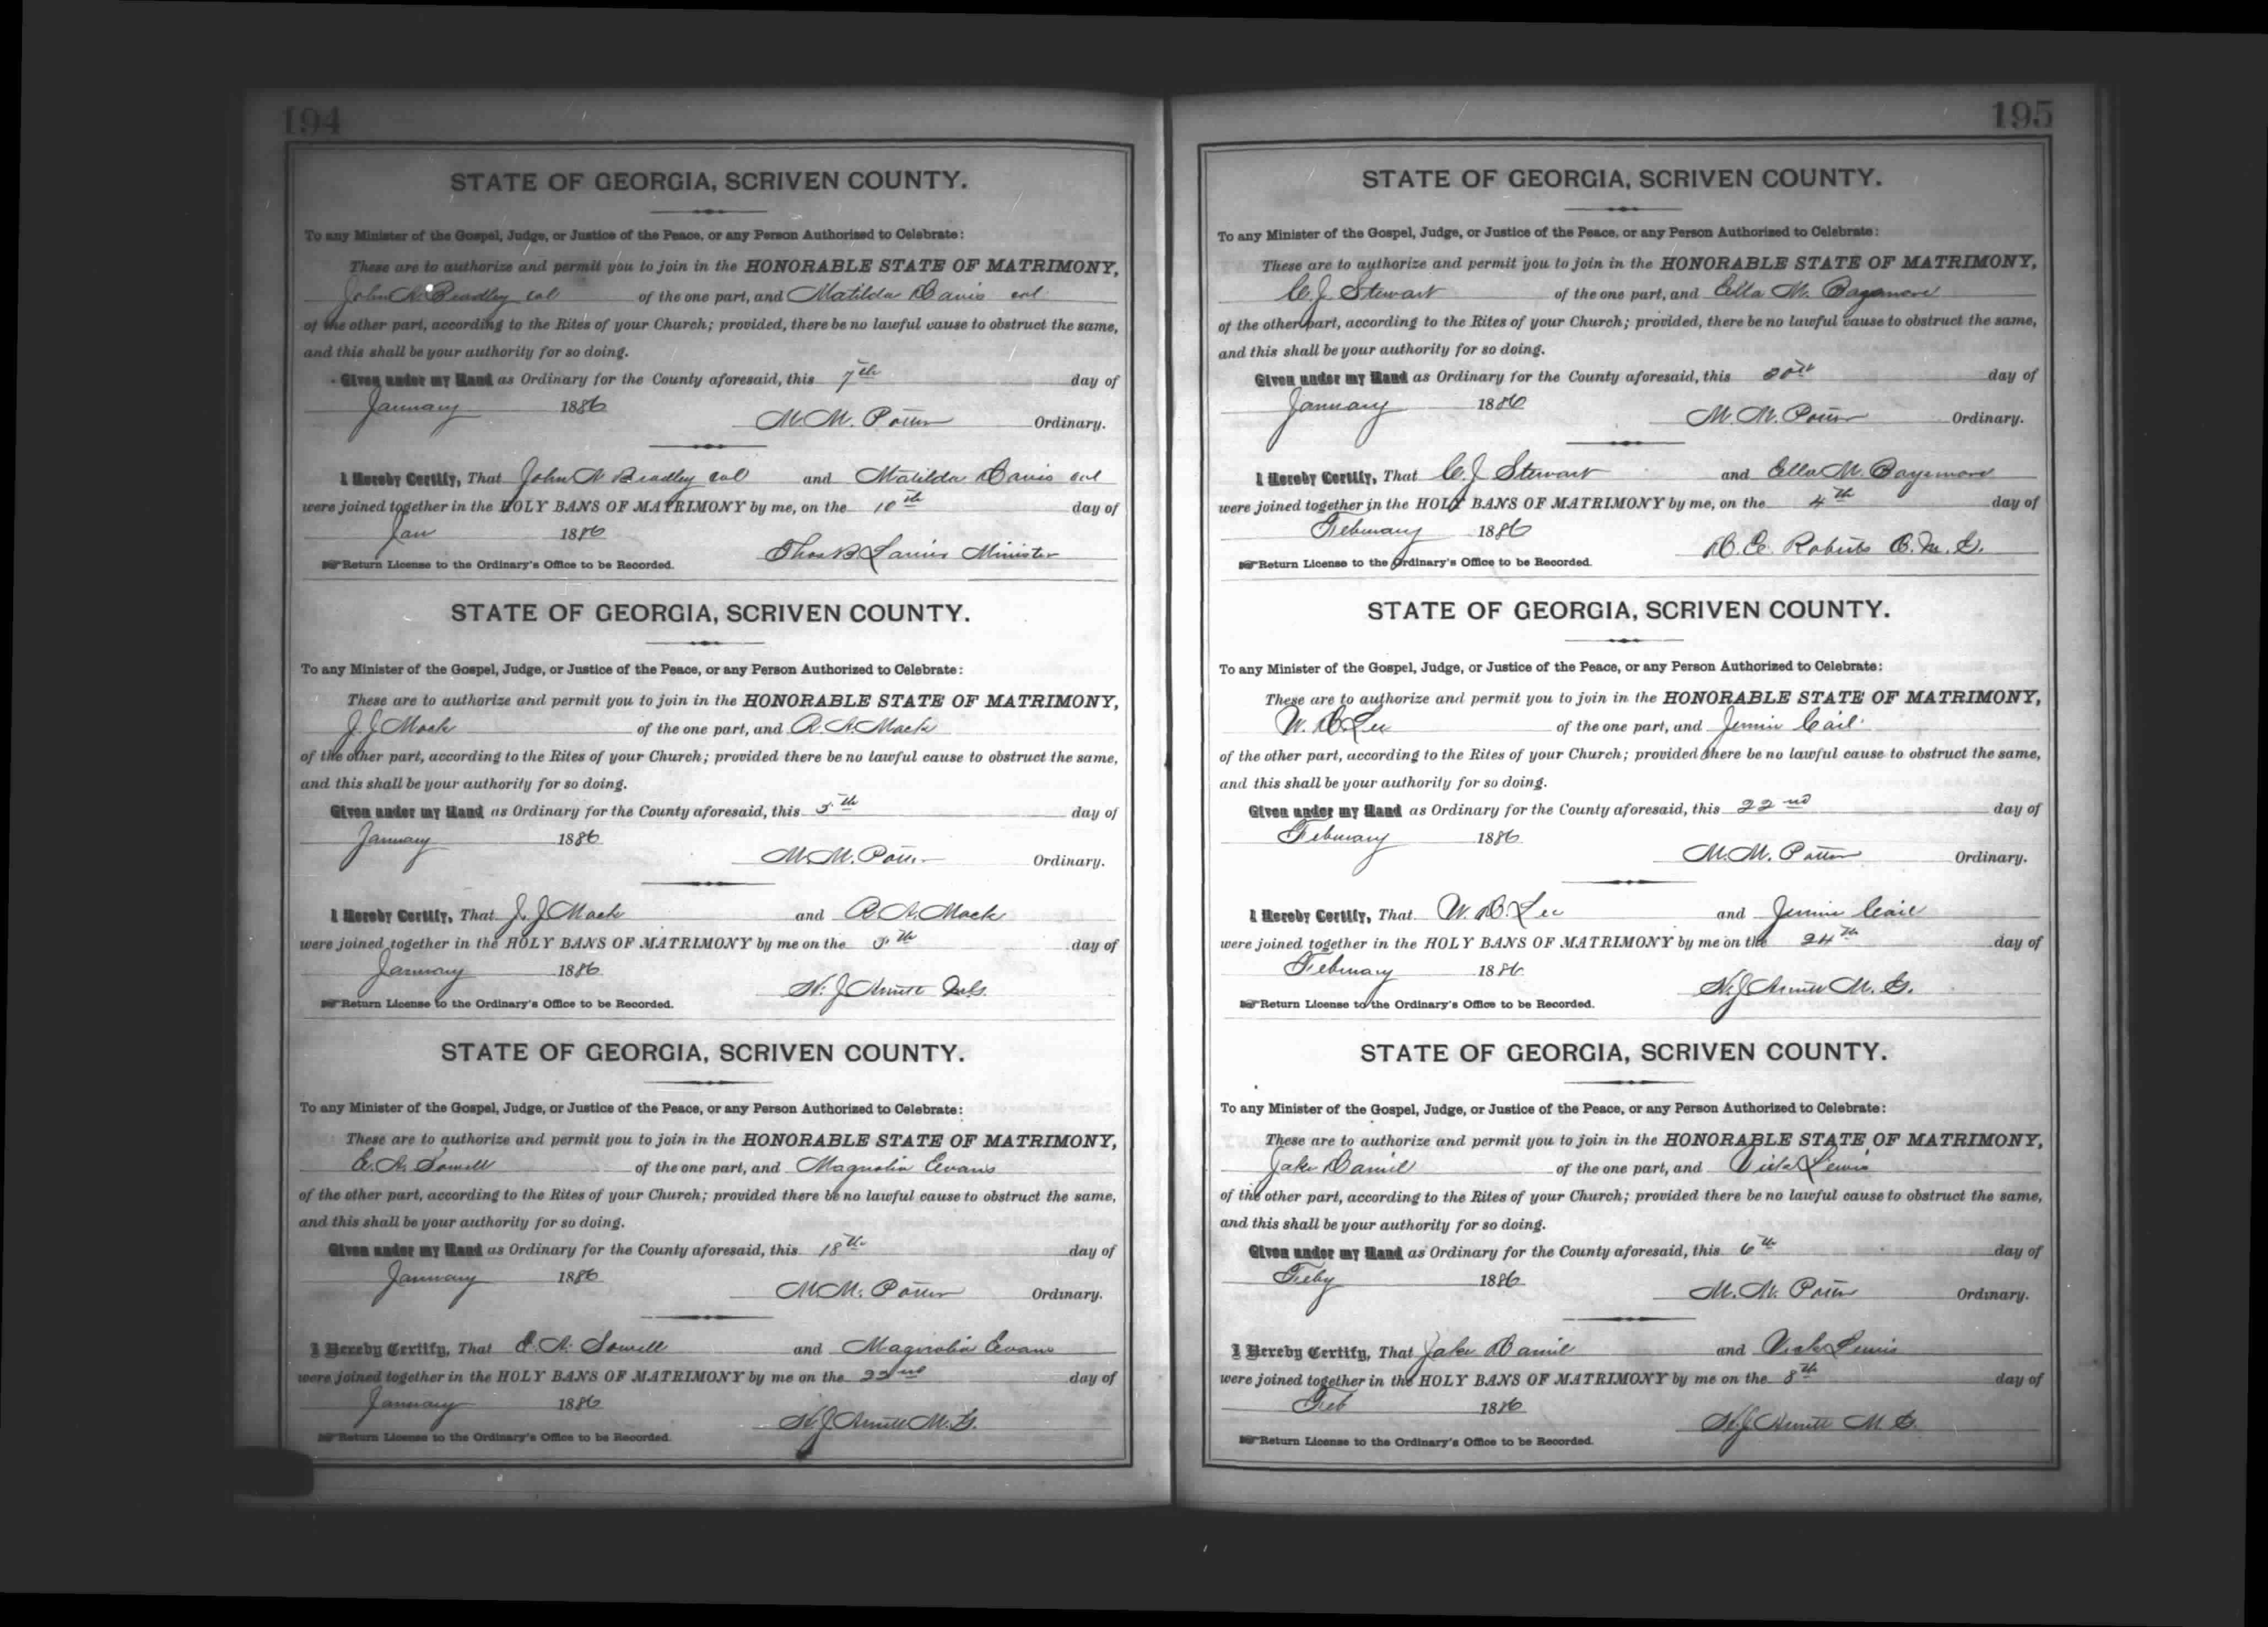 194
STATE OF GEORGIA, SCRIVEN COUNTY.
To any Minister of the Gospel, Judge, or Justice of the Peace, or any Person Authorized to Celebrate:
These are to authorize and permit you to join in the HONORABLE STATE OF MATRIMONY,
John N. Bradley col of the one part, and Matilda Davis col
of the other part, according to the Rites of your Church; provided, there be no lawful cause to obstruct the same,
and this shall be your authority for so doing.
Given under my Hand as Ordinary for the County aforesaid, this 7th day of
January 1886 M. M. Potter Ordinary.
I Hereby Certify, That John N Bradley col and Matilda Davis col
were joined together in the HOLY BANS OF MATRIMONY by me, on the 10th day of
Jan 1886 Thos B. Lanier Minister
Return License to the Ordinary's Office to be Recorded.
STATE OF GEORGIA, SCRIVEN COUNTY.
To any Minister of the Gospel, Judge, or Justice of the Peace, or any Person Authorized to Celebrate:
These are to authorize and permit you to join in the HONORABLE STATE OF MATRIMONY,
J. J. Mock of the one part, and R. A. Mock
of the other part, according to the Rites of your Church; provided there be no lawful cause to obstruct the same,
and this shall be your authority for so doing.
Given under my Hand as Ordinary for the County aforesaid, this 5th day of
January 1886 M. M. Potter Ordinary.
I Hereby Certify, That J. J Mock and R. A. Mock
were joined together in the HOLY BANS OF MATRIMONY by me on the th day of
January 1886 H. J Arnett
Return License to the Ordinary's Office to be Recorded.
STATE OF GEORGIA, SCRIVEN COUNTY.
To any Minister of the Gospel, Judge, or Justice of the Peace, or any Person Authorized to Celebrate:
These are to authorize and permit you to join in the HONORABLE STATE OF MATRIMONY,
E. A. Sowell of the one part, and Magnolia Evans
of the other part, according to the Rites of your Church; provided there be no lawful cause to obstruct the same,
and this shall be your authority for so doing.
Given under my Hand as Ordinary for the County aforesaid, this 18th day of
January 1886 M. M. Potter Ordinary.
I Hereby Certify, That E. A. Sowell and Magnolia Evans
were joined together in the HOLY BANS OF MATRIMONY by me on the 22nd day of
January 1886 H. J Arnett M. G.
Return License to the Ordinary's Office to be Recorded.
195
STATE OF GEORGIA, SCRIVEN COUNTY.
To any Minister of the Gospel, Judge, or Justice of the Peace, or any Person Authorized to Celebrate:
These are to authorize and permit you to join in the HONORABLE STATE OF MATRIMONY,
C. J. Stewart of the one part, and Ella M. Bazemore
of the other part, according to the Rites of your Church; provided, there be no lawful cause to obstruct the same,
and this shall be your authority for so doing.
Given under my Hand as Ordinary for the County aforesaid, this 30th day of
January 1886 M. M. Potter Ordinary.
I Hereby Certify, That C. J Stewart and Ella M. Bazemore
were joined together in the HOLY BANS OF MATRIMONY by me, on the 4th day of
February 1886 Roberts O. M. G.
Return License to the Ordinary's Office to be Recorded.
STATE OF GEORGIA, SCRIVEN COUNTY.
To any Minister of the Gospel, Judge, or Justice of the Peace, or any Person Authorized to Celebrate:
These are to authorize and permit you to join in the HONORABLE STATE OF MATRIMONY,
W. D. Lee of the one part, and Jennie Cail
of the other part, according to the Rites of your Church; provided there be no lawful cause to obstruct the same,
and this shall be your authority for so doing.
Given under my Hand as Ordinary for the County aforesaid, this 22nd day of
February 1886 M. M. Potter Ordinary.
I Hereby Certify, That W. D. Lee and Jennie Cail
were joined together in the HOLY BANS OF MATRIMONY by me on the 24th day of
February 1886 H. J Arnett M. G.
Return License to the Ordinary's Office to be Recorded.
STATE OF GEORGIA, SCRIVEN COUNTY.
To any Minister of the Gospel, Judge, or Justice of the Peace, or any Person Authorized to Celebrate:
These are to authorize and permit you to join in the HONORABLE STATE OF MATRIMONY,
Jake Daniel of the one part, and Lewis
of the other part, according to the Rites of your Church; provided there be no lawful cause to obstruct the same,
and this shall be your authority for so doing.
Given under my Hand as Ordinary for the County aforesaid, this 6th day of
Feby 1886 M. M. Potter Ordinary.
I Hereby Certify, That Jake Daniel and Lewis
were joined together in the HOLY BANS OF MATRIMONY by me on the 8th day of
Feb 1886 H. J Arnett M. G.
Return License to the Ordinary's Office to be Recorded.